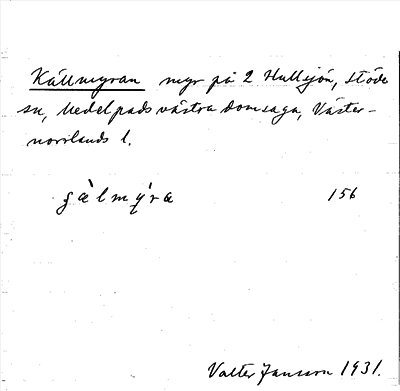 Källmyran myr på 2 Hullsjön, Stöde
sn, Medelpads västra domsaga, Väster-
norrlands l.
gä̀lmýra 156
Valter Jansson 1931.